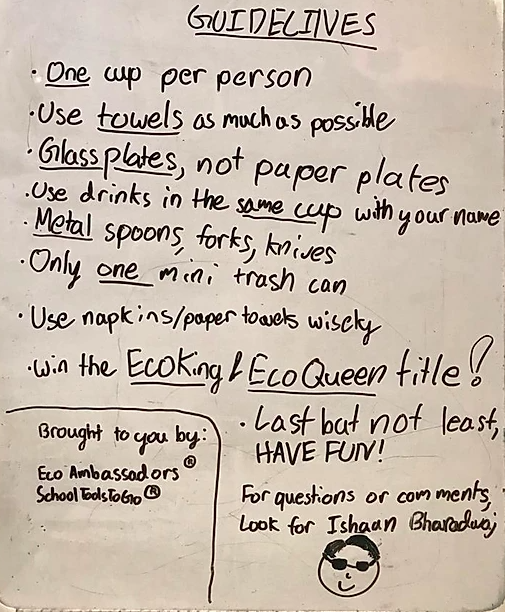 GUIDELINES
· One cup per person
· Use towels as much as possible
· Glass plates, not paper plates
· Use drinks in the same cup with your name
· Metal spoons, forks, knives
· Only one mini trash can
· Use napkins/paper towels wisely
· Win the EcoKing/EcoQueen title!
· Last but not least,
HAVE FUN!
Brought to you by:
Eco Ambassadors®
SchoolToolsToGo®
For questions or comments,
Look for Ishaan Bharadwaj